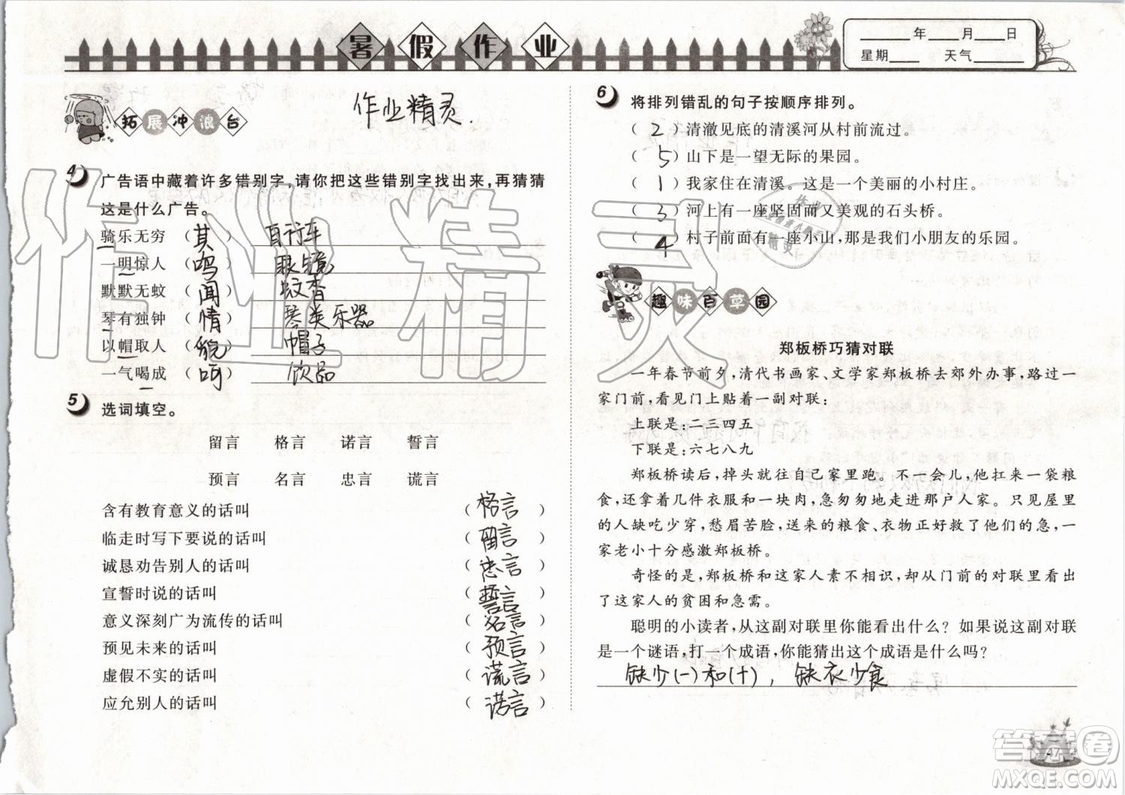 暑假作业
____年____月____日
星期____ 天气____
拓展冲浪台
作业精灵.
4 广告语中藏着许多错别字,请你把这些错别字找出来,再猜猜
这是什么广告。
骑乐无穷 (其) 自行车
一明惊人 (鸣) 眼镜
默默无蚊 (闻) 蚊香
琴有独钟 (情) 琴类乐器
以帽取人 (貌) 帽子
一气喝成 (呵) 饮品
5 选词填空。
留言 格言 诺言 誓言
预言 名言 忠言 谎言
含有教育意义的话叫 (格言)
临走时写下要说的话叫 (留言)
诚恳劝告别人的话叫 (忠言)
宣誓时说的话叫 (誓言)
意义深刻广为流传的话叫 (名言)
预见未来的话叫 (预言)
虚假不实的话叫 (谎言)
应允别人的话叫 (诺言)
6 将排列错乱的句子按顺序排列。
(2)清澈见底的清溪河从村前流过。
(5)山下是一望无际的果园。
(1)我家住在清溪。这是一个美丽的小村庄。
(3)河上有一座坚固而又美观的石头桥。
(4)村子前面有一座小山,那是我们小朋友的乐园。
趣味百草园
郑板桥巧猜对联
一年春节前夕,清代书画家、文学家郑板桥去郊外办事,路过一
家门前,看见门上贴着一副对联:
上联是:二三四五
下联是:六七八九
郑板桥读后,掉头就往自己家里跑。不一会儿,他扛来一袋粮
食,拿着几件衣服和一块肉,急匆匆地走进那户人家。只见屋里
的人缺吃少穿,愁眉苦脸,送来的粮食、衣物正好救了他们的急,一
家老小十分感激郑板桥。
奇怪的是,郑板桥和这家人素不相识,却从门前的对联里看出
了这家人的贫困和急需。
聪明的小读者,从这副对联里你能看出什么?如果说这副对联
是一个谜语,打一个成语,你能猜出这个成语是什么吗?
缺少(一)和(十),缺衣少食
作业精灵
47
答案圈
MXQE.COM